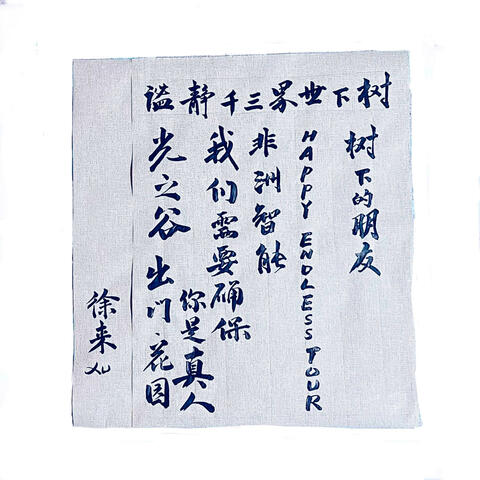 树下世界三千静谧
树下的朋友
HAPPY ENDLESS TOUR
非洲智能
我们需要确保
你是真人
光之谷出门、花园
徐来 XU